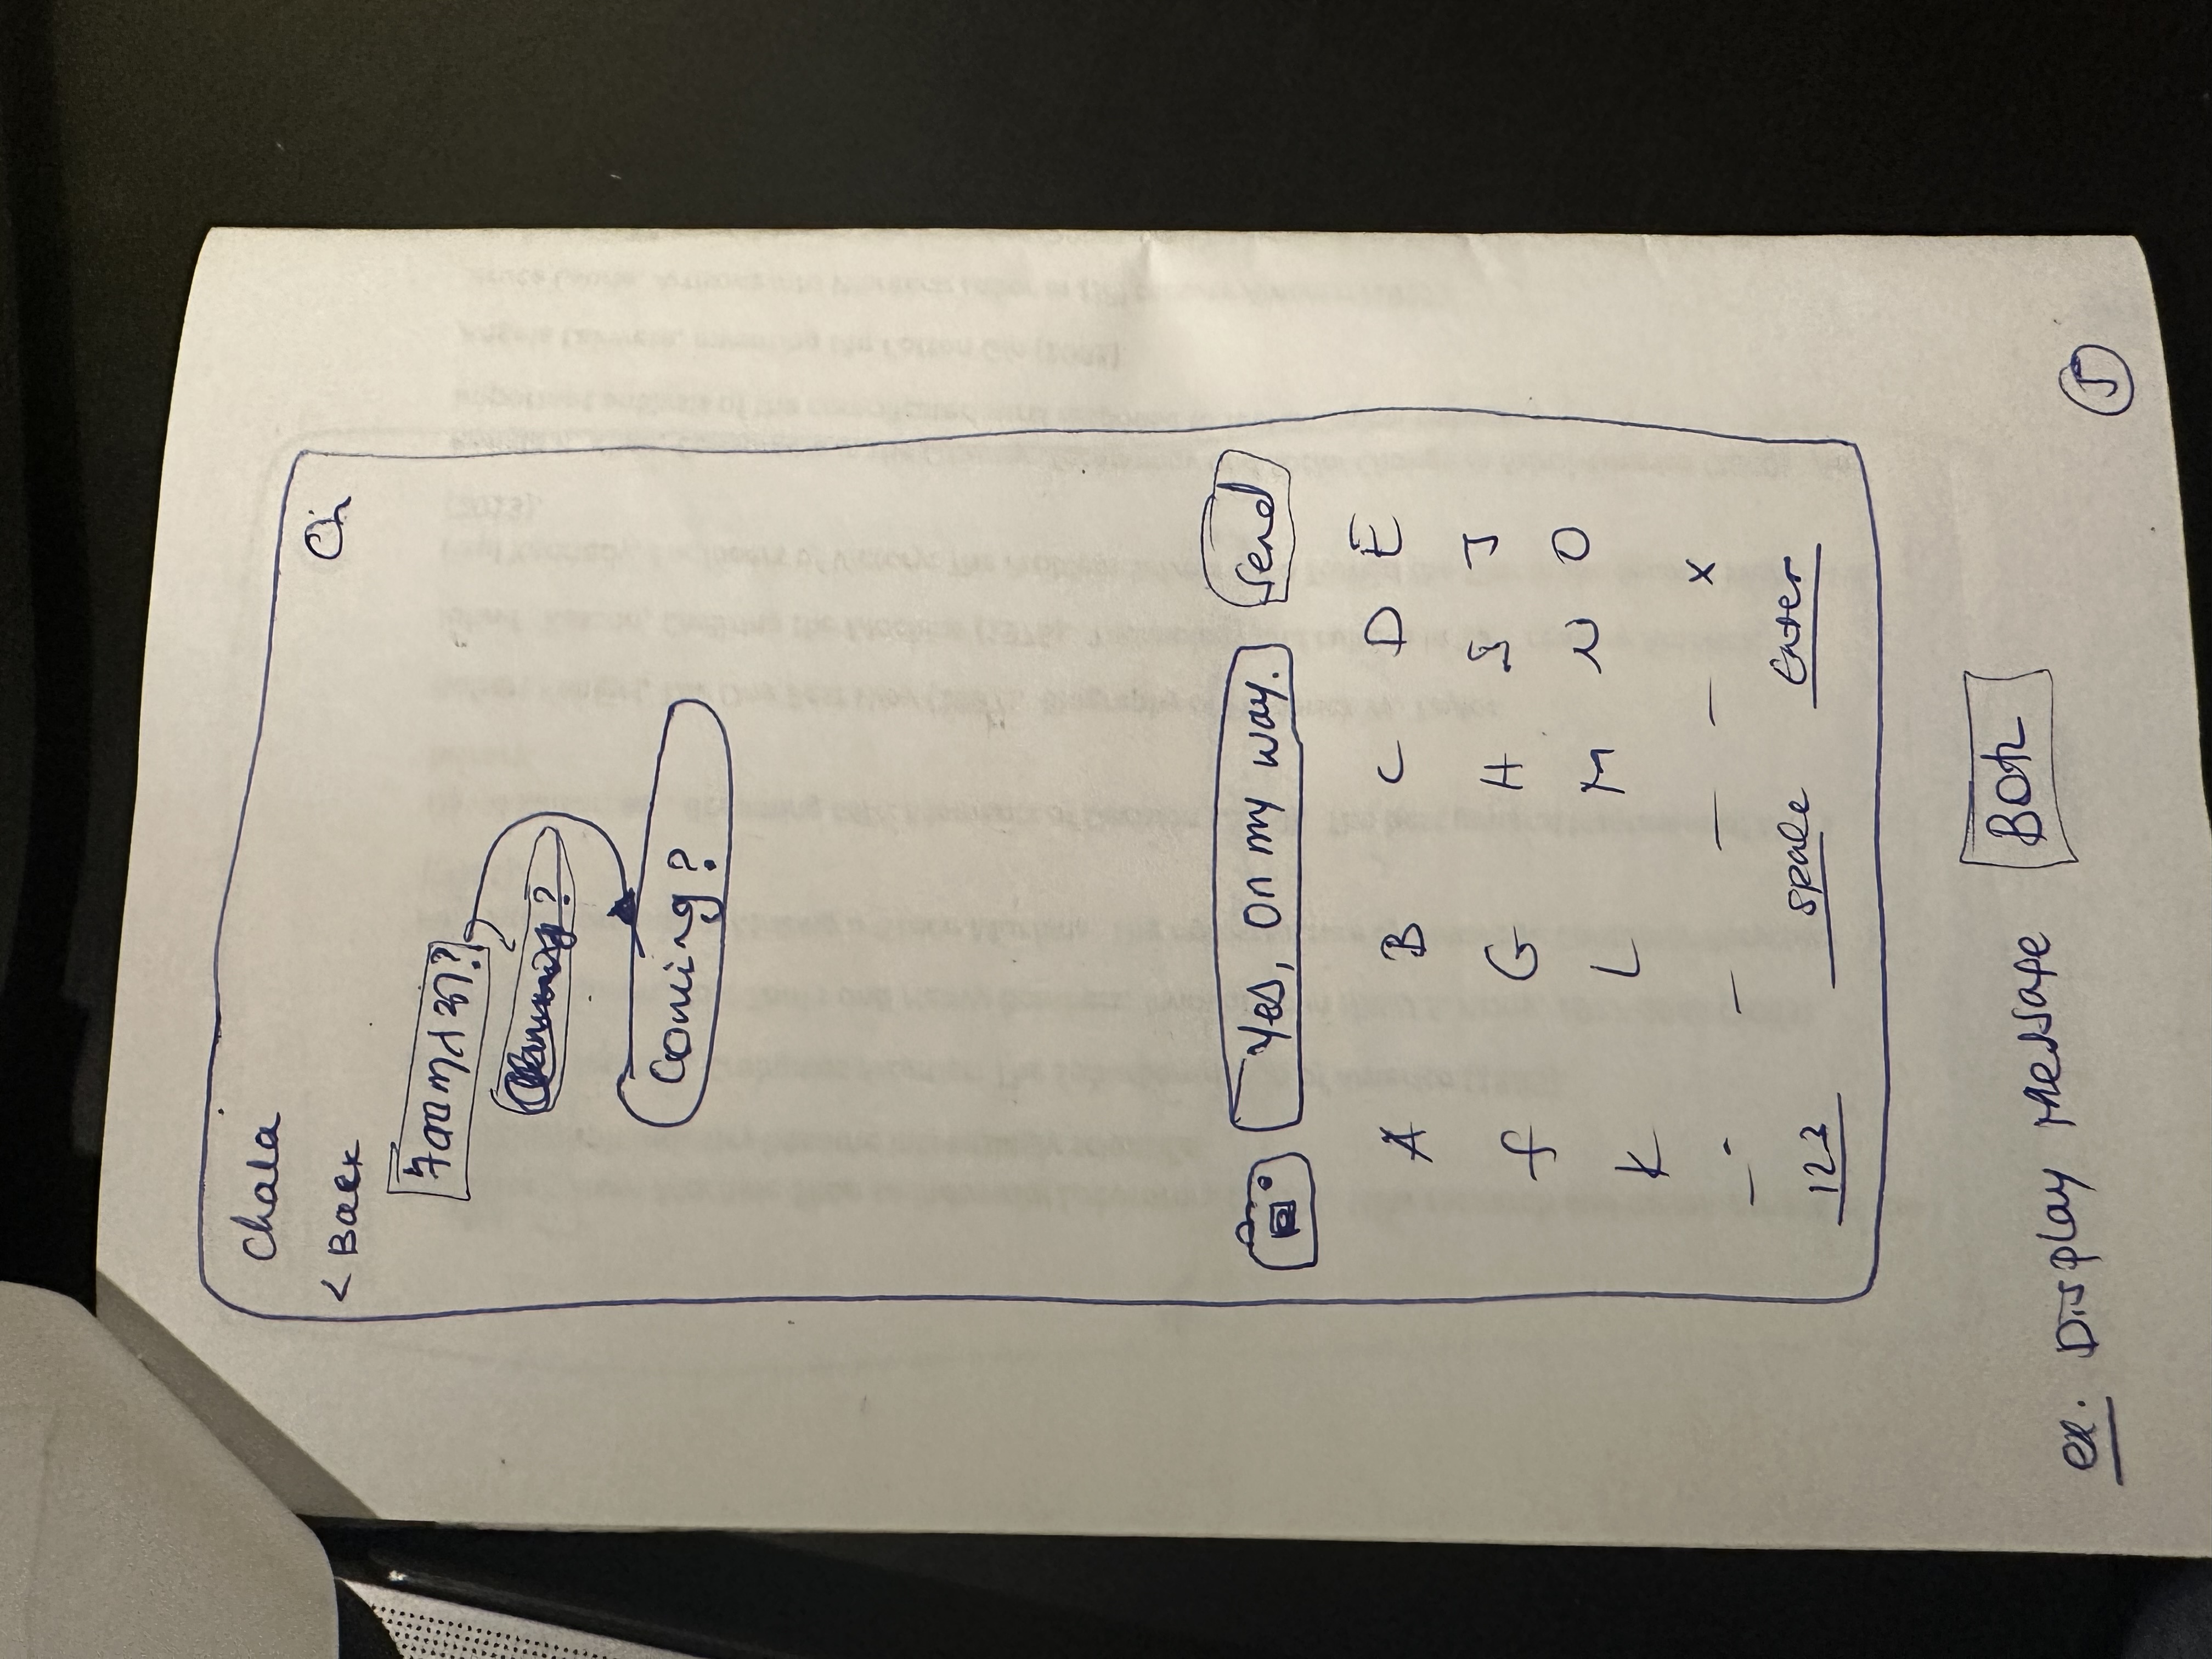 Chala
< Back
Ch
Coming?
Yes, on my way.
Send
A B C D E
f G H I J
K L M N O
_ _ _ _ x
123 space Enter
ex. Display message Both
5